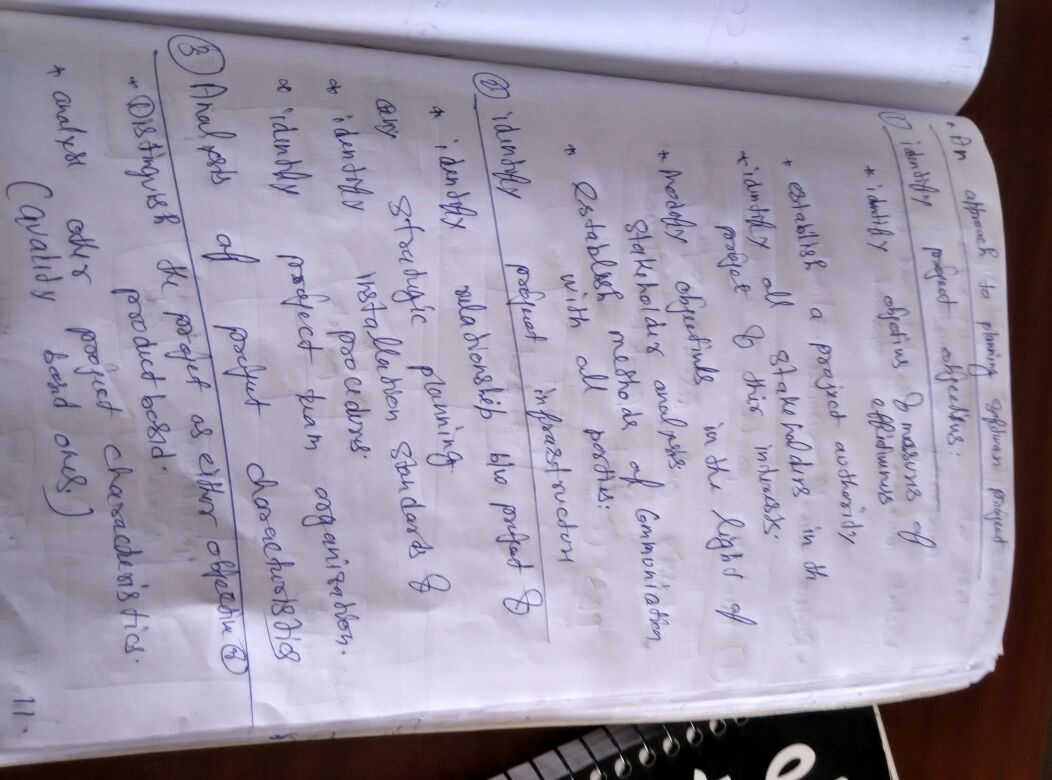 * An approach to planning software project
① identify project objectives:
* identify objectives & measures of
effectiveness
* establish a project authority
* identify all stakeholders in the
project & their interests.
* modify objectives in the light of
stakeholder analysis.
* establish methods of Communication
with all parties:
② identify project infrastructure
* identify relationship b/w project &
any strategic planning
* identify installation standards &
procedures.
* identify project team organisation.
③ Analysis of project characteristics
* Distinguish the project as either objective &
product based.
* analysis other project characteristics.
(quality based ones.)
11